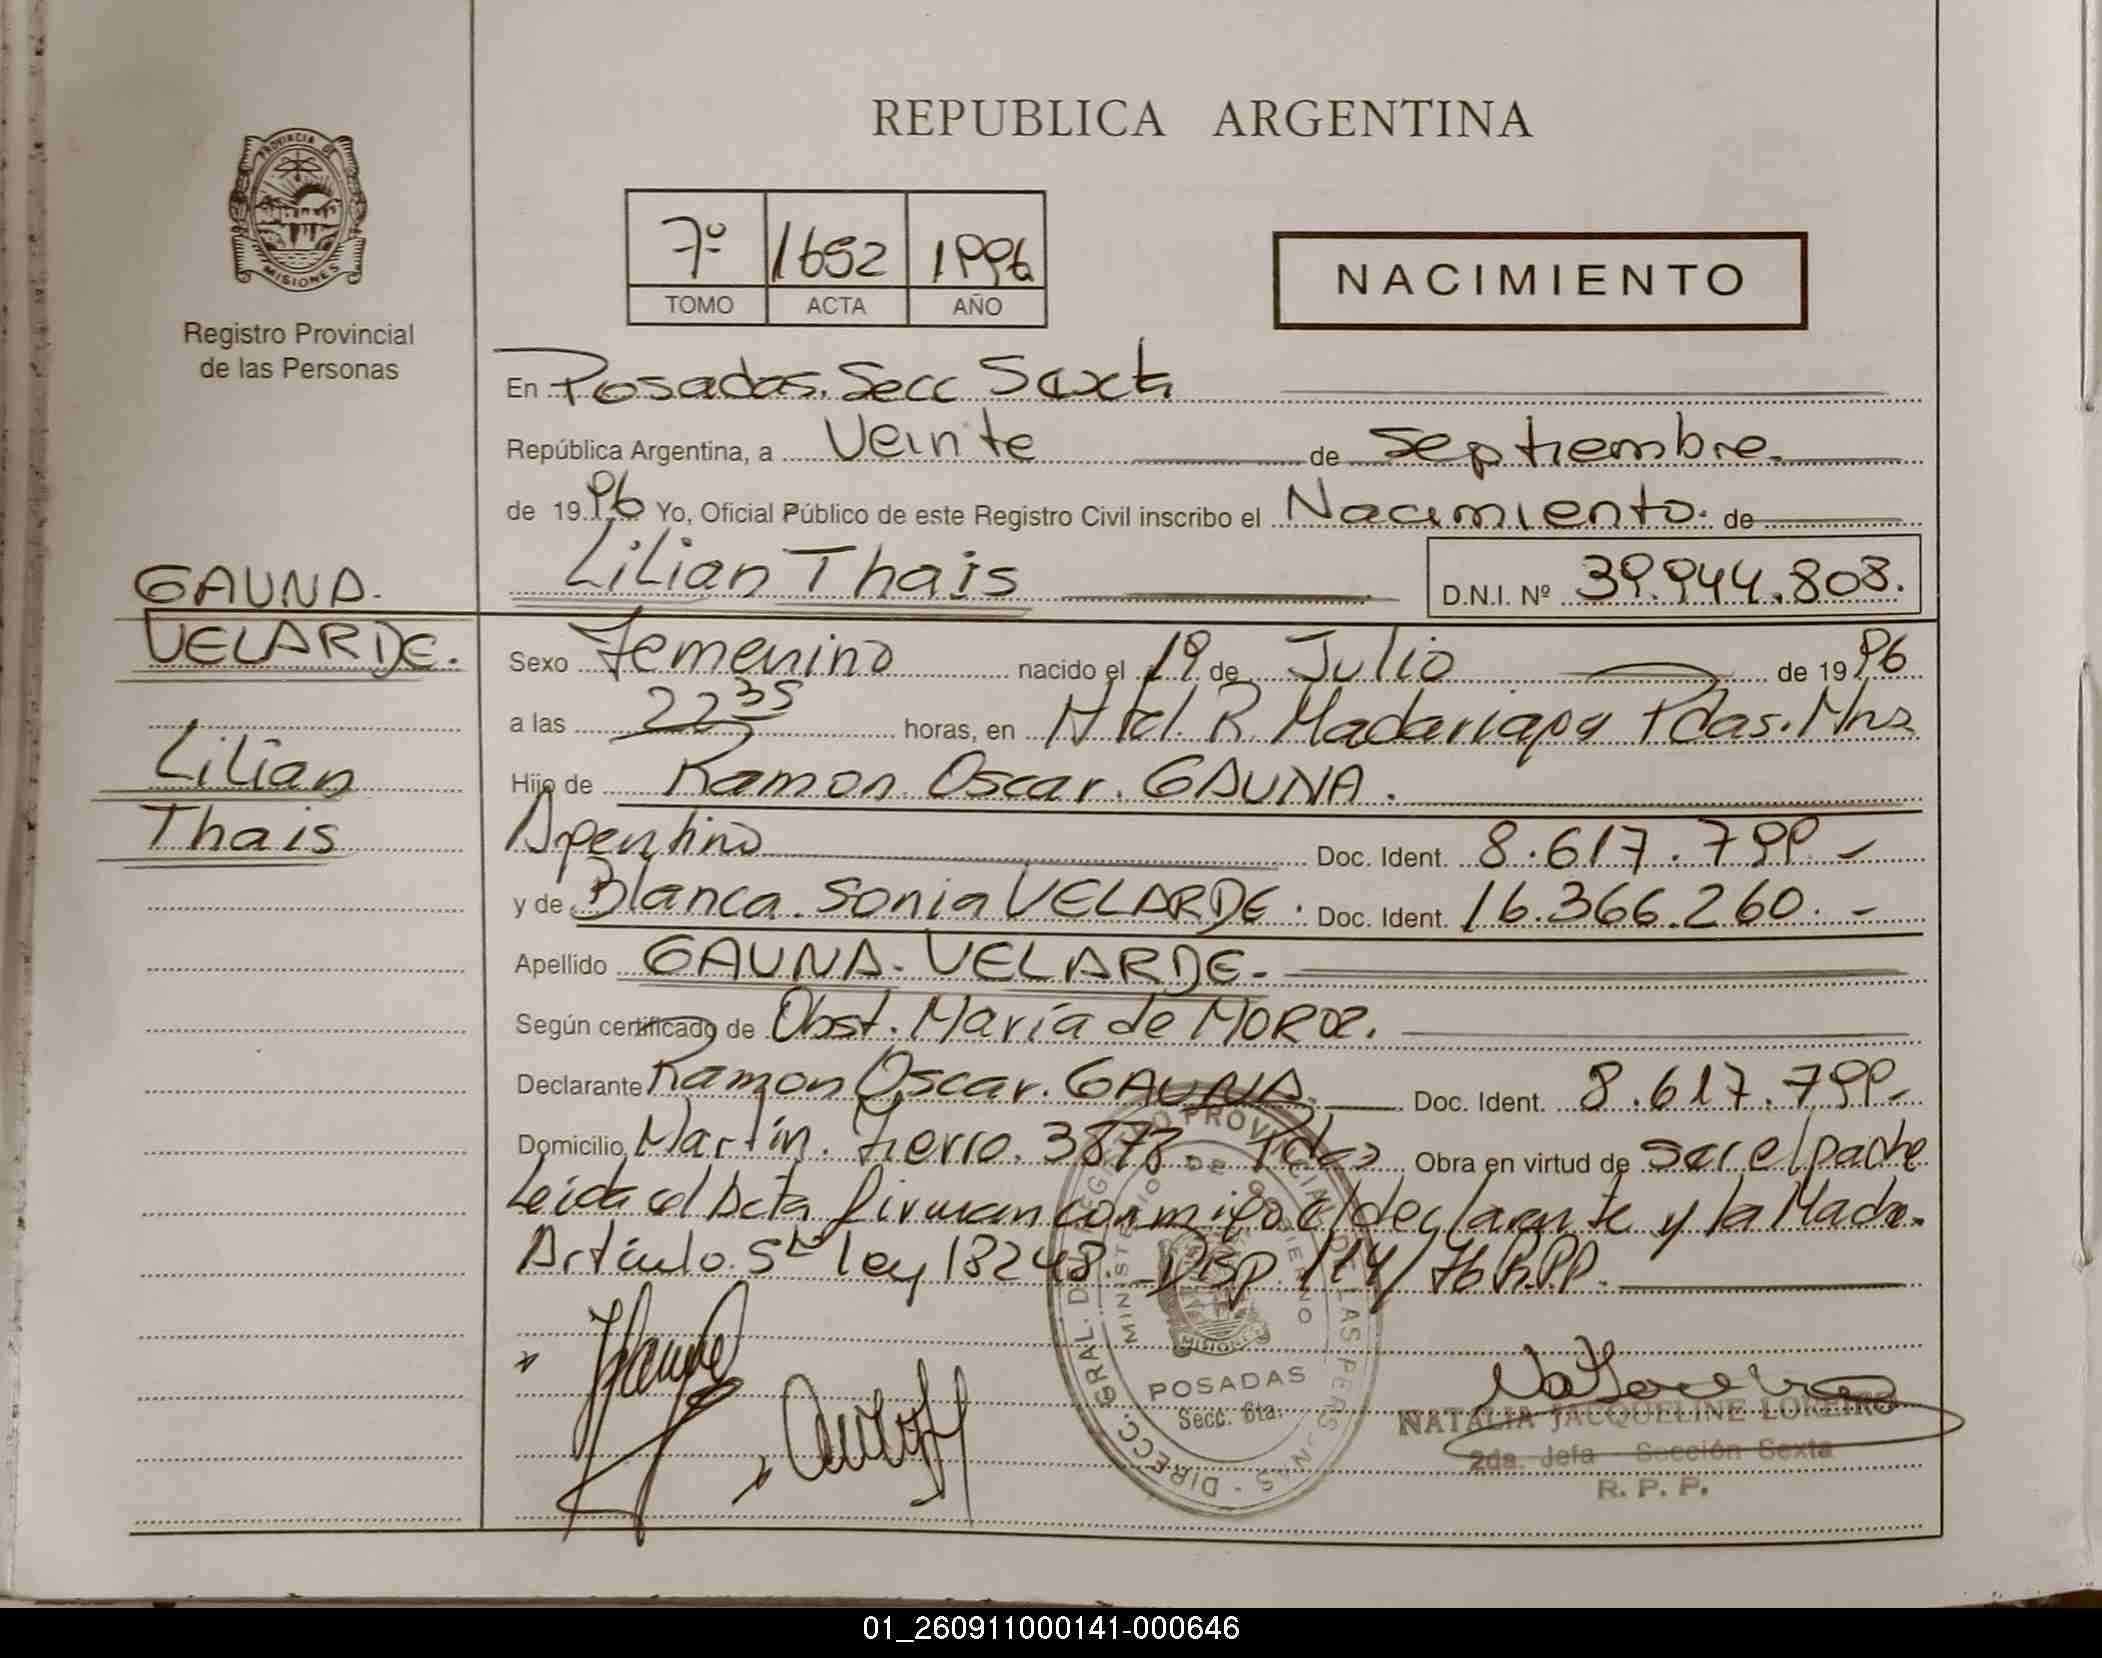 REPUBLICA ARGENTINA
PROVINCIA DE
MISIONES
Registro Provincial
de las Personas
7º 1652 1996
TOMO ACTA AÑO
NACIMIENTO
En Posadas. Secc Sexta
República Argentina, a Veinte de Septiembre.
de 1996 Yo, Oficial Público de este Registro Civil inscribo el Nacimiento. de
Lilian Thais D.N.I. Nº 39.944.808.
GAUNA.
VELARDE.
Lilian
Thais
Sexo Femenino nacido el 19 de Julio de 1996
a las 22 35 horas, en R. Madariaga Pdas. Mns
Hijo de Ramon Oscar. GAUNA.
Argentino Doc. Ident. 8.617.799.-
y de Blanca. Sonia VELARDE. Doc. Ident. 16.366.260.-
Apellido GAUNA. VELARDE.
Según certificado de Obst. María de MOROZ.
Declarante Ramon Oscar. GAUNA. Doc. Ident. 8.617.799.-
Domicilio Martín. Fierro. 3878. Pdas Obra en virtud de ser el padre
Leida el Acta firman conmigo el declarante y la Madre.
Artículo 5to ley 18248. Disp 114/76 R.P.P.
DIRECC. GRAL. DEL REGISTRO PROVINCIAL DE LAS PERSONAS
MINISTERIO DE GOBIERNO
MISIONES
POSADAS
Secc. 6ta.
NATALIA JACQUELINE LOREIRO
2da. Jefa Sección Sexta
R. P. P.
01_260911000141-000646